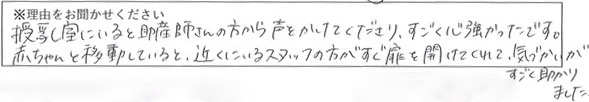 ※理由をお聞かせください
授乳室にいると助産師さんの方から声をかけてくださり、すごく心強かったです。
赤ちゃんと移動していると、近くにいるスタッフの方がすぐ扉を開けてくれて、気づかいが
すごく助かり
ました。